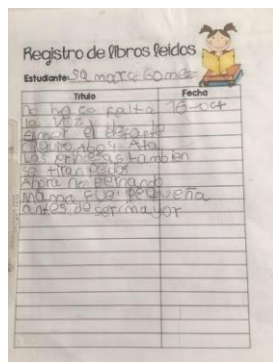 Registro de libros leidos
Estudiante: Sa mara Gomez
Título Fecha
No hace falta 16-oct
la voz
Elmer el elefante
Las princesas tambien
se tiran pedos
Ahora no Bernardo
Mamá fue pequeña
antes de ser mayor